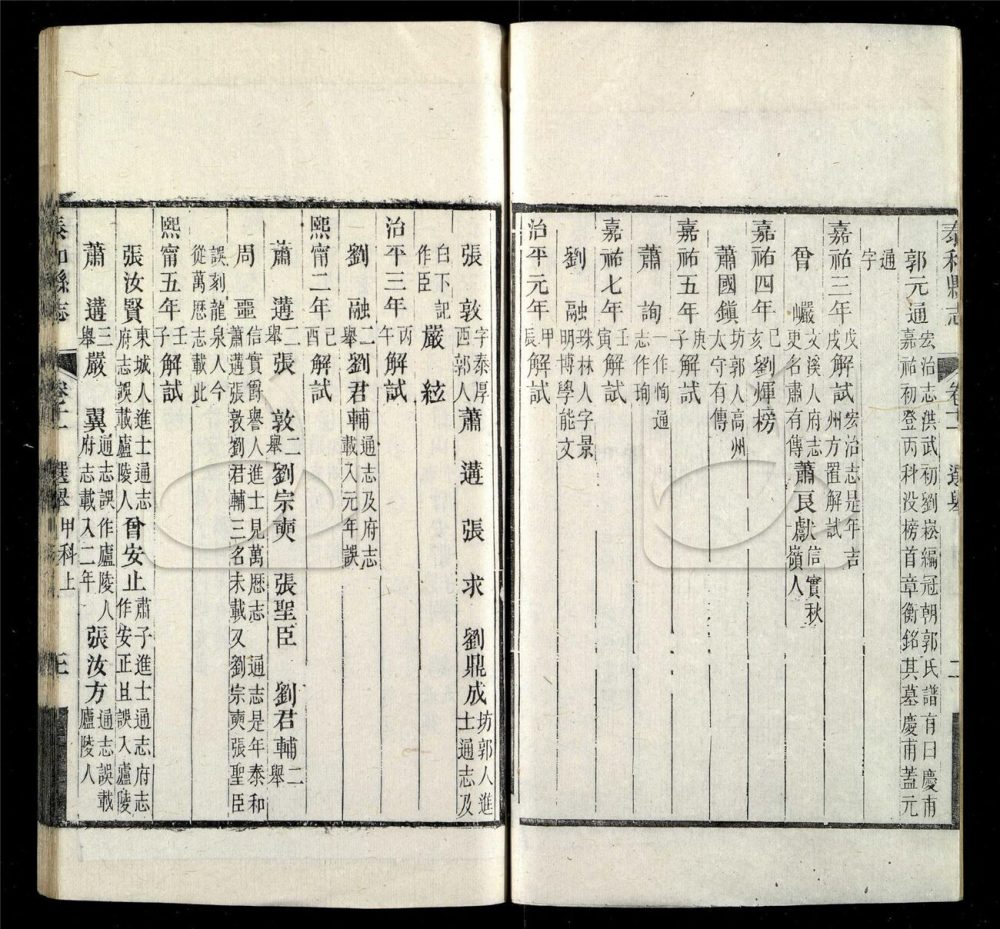 泰和縣志 卷十一 選舉 二
郭元通宏治志洪武初劉崧編冠朝郭氏譜有曰慶甫
嘉祐初登丙科没榜首章衡銘其墓慶甫蓋元
通
字
嘉祐三年戊戌解試宏治志是年吉
州方置解試
曾巘文溪人府志
更名肅有傳蕭良獻信實秋
嶺人
嘉祐四年己亥劉煇榜
蕭國鎮坊郭人高州
太守有傳
嘉祐五年庚子解試
蕭詢一作恂通
志作珣
嘉祐七年壬寅解試
劉融珠林人字景
明博學能文
治平元年甲辰解試
張敦字泰厚
西郭人蕭遘 張求 劉鼎成坊郭人進
士通志及
白下記
作臣嚴絃
治平三年丙午解試
劉融二
舉劉君輔通志及府志
載入元年誤
熙甯二年己酉解試
蕭遘二
舉張敦二
舉劉宗奭 張聖臣 劉君輔二
舉
周噩信實爵譽人進士見萬厯志 通志是年泰和
蕭遘張敦劉君輔三名未載又劉宗奭張聖臣
誤刻龍泉人今
從萬厯志載此
熙甯五年壬子解試
張汝賢東城人進士通志
府志誤載廬陵人曾安止肅子進士通志府志
作安正且誤入廬陵
蕭遘三
舉嚴翼通志誤作廬陵人
府志載入二年張汝方通志誤載
廬陵人
泰和縣志 卷十一 選舉 甲科上 三